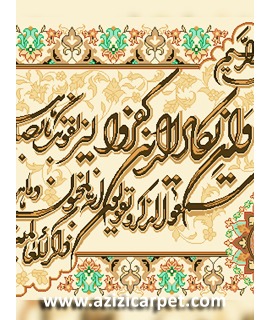 وان یکاد الذین کفروا لیزلقونک بابصا
الذکر و یقولون انه لمجنون و ما
ذکر للعالمین
www.azizicarpet.com